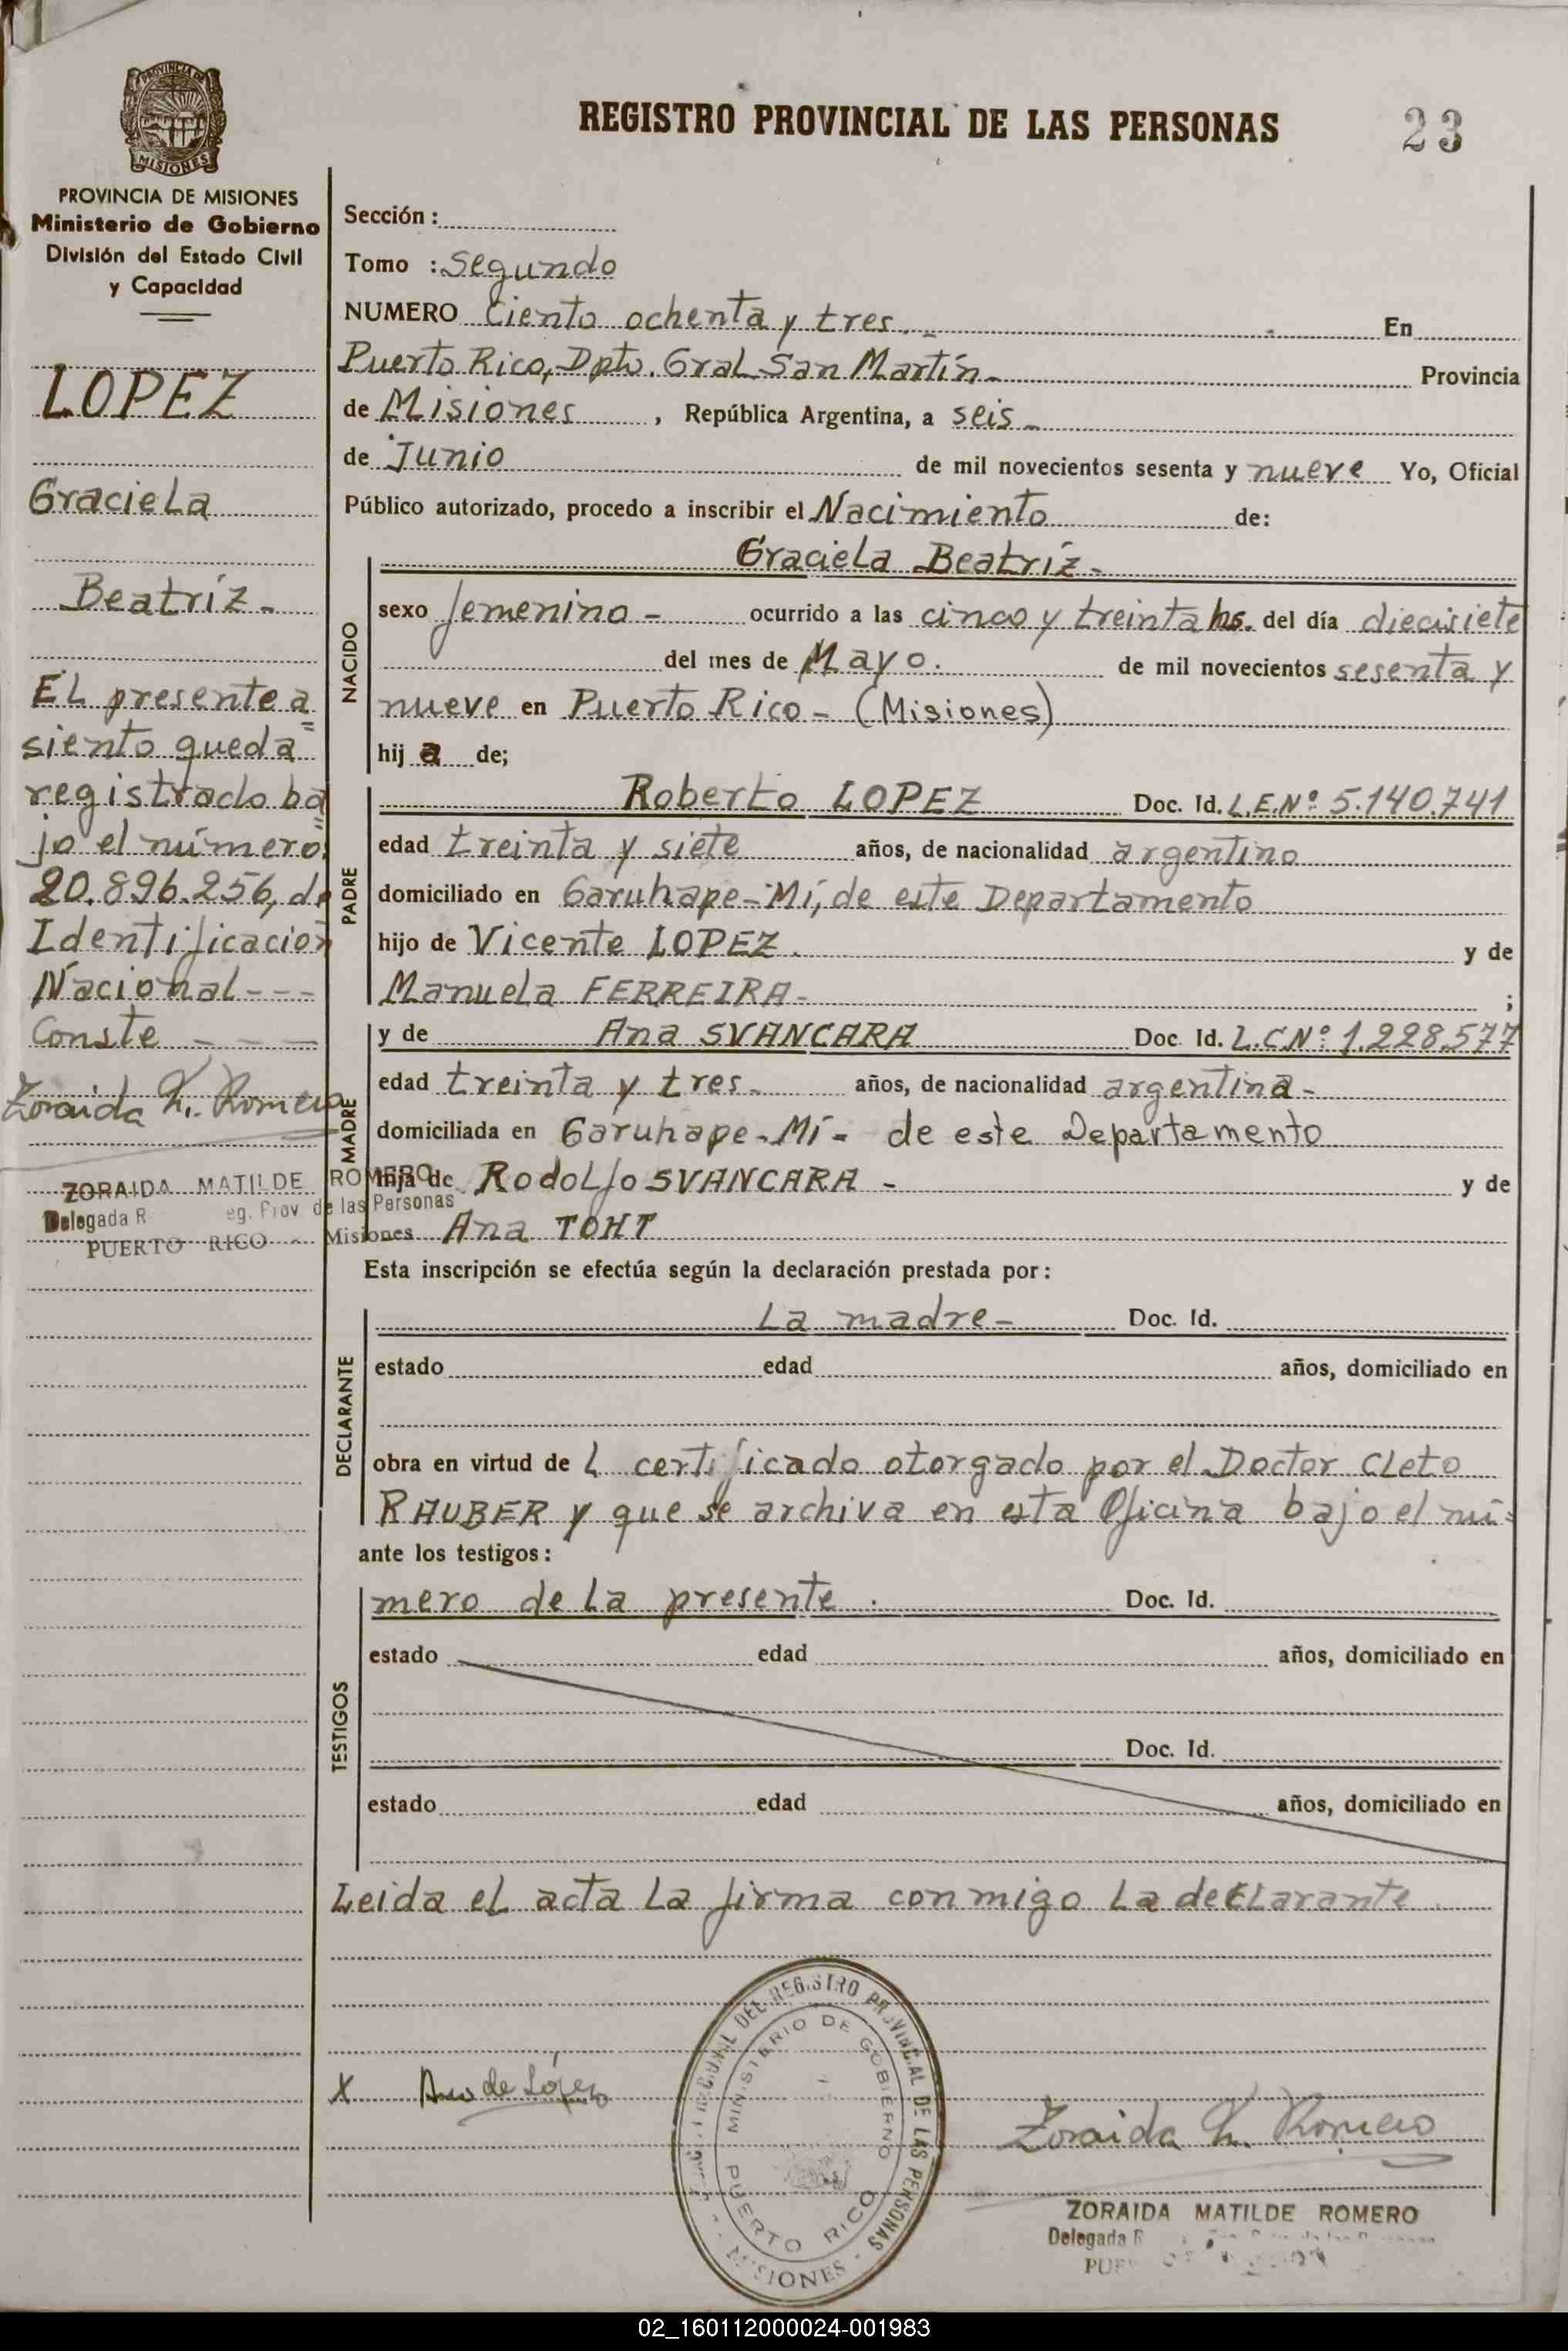 REGISTRO PROVINCIAL DE LAS PERSONAS
23
PROVINCIA DE
MISIONES
PROVINCIA DE MISIONES
Ministerio de Gobierno
División del Estado Civil
y Capacidad
LOPEZ
Graciela
Beatríz -
EL presente a=
siento queda
registrado ba=
jo el número
20.896.256, de
Identificación
Nacional ---
Conste - - -
Zoraida M. Romero
ZORAIDA MATILDE ROMERO
Delegada R eg. Prov de las Personas
PUERTO RICO - Misiones
Sección :
Tomo : Segundo
NUMERO Ciento ochenta y tres.- En
Puerto Rico, Dpto. Gral. San Martín - Provincia
de Misiones , República Argentina, a seis -
de Junio de mil novecientos sesenta y nueve Yo, Oficial
Público autorizado, procedo a inscribir el Nacimiento de:
NACIDO
Graciela Beatríz -
sexo femenino - ocurrido a las cinco y treinta hs. del día diecisiete
del mes de Mayo. de mil novecientos sesenta y
nueve en Puerto Rico - (Misiones)
hij a de;
PADRE
Roberto LOPEZ Doc. Id. L.E.Nº 5.140.741
edad treinta y siete años, de nacionalidad argentino
domiciliado en Garuhape-Mí, de este Departamento
hijo de Vicente LOPEZ. y de
Manuela FERREIRA- ;
MADRE
y de Ana SVANCARA Doc. Id. L.C.Nº: 1.228.577
edad treinta y tres. años, de nacionalidad argentina -
domiciliada en Garuhape-Mí - de este Departamento
hija de Rodolfo SVANCARA - y de
Ana TOHT
Esta inscripción se efectúa según la declaración prestada por:
DECLARANTE
La madre - Doc. Id.
estado edad años, domiciliado en
obra en virtud de L certificado otorgado por el Doctor Cleto
RAUBER y que se archiva en esta Oficina bajo el nú=
ante los testigos:
TESTIGOS
mero de la presente . Doc. Id.
estado edad años, domiciliado en
Doc. Id.
estado edad años, domiciliado en
Leida el acta La firma conmigo La declarante
X Ana de López
DEL REGISTRO PROVINCIAL DE LAS PERSONAS
MINISTERIO DE GOBIERNO
PUERTO RICO
- MISIONES -
Zoraida M. Romero
ZORAIDA MATILDE ROMERO
Delegada R
02_160112000024-001983